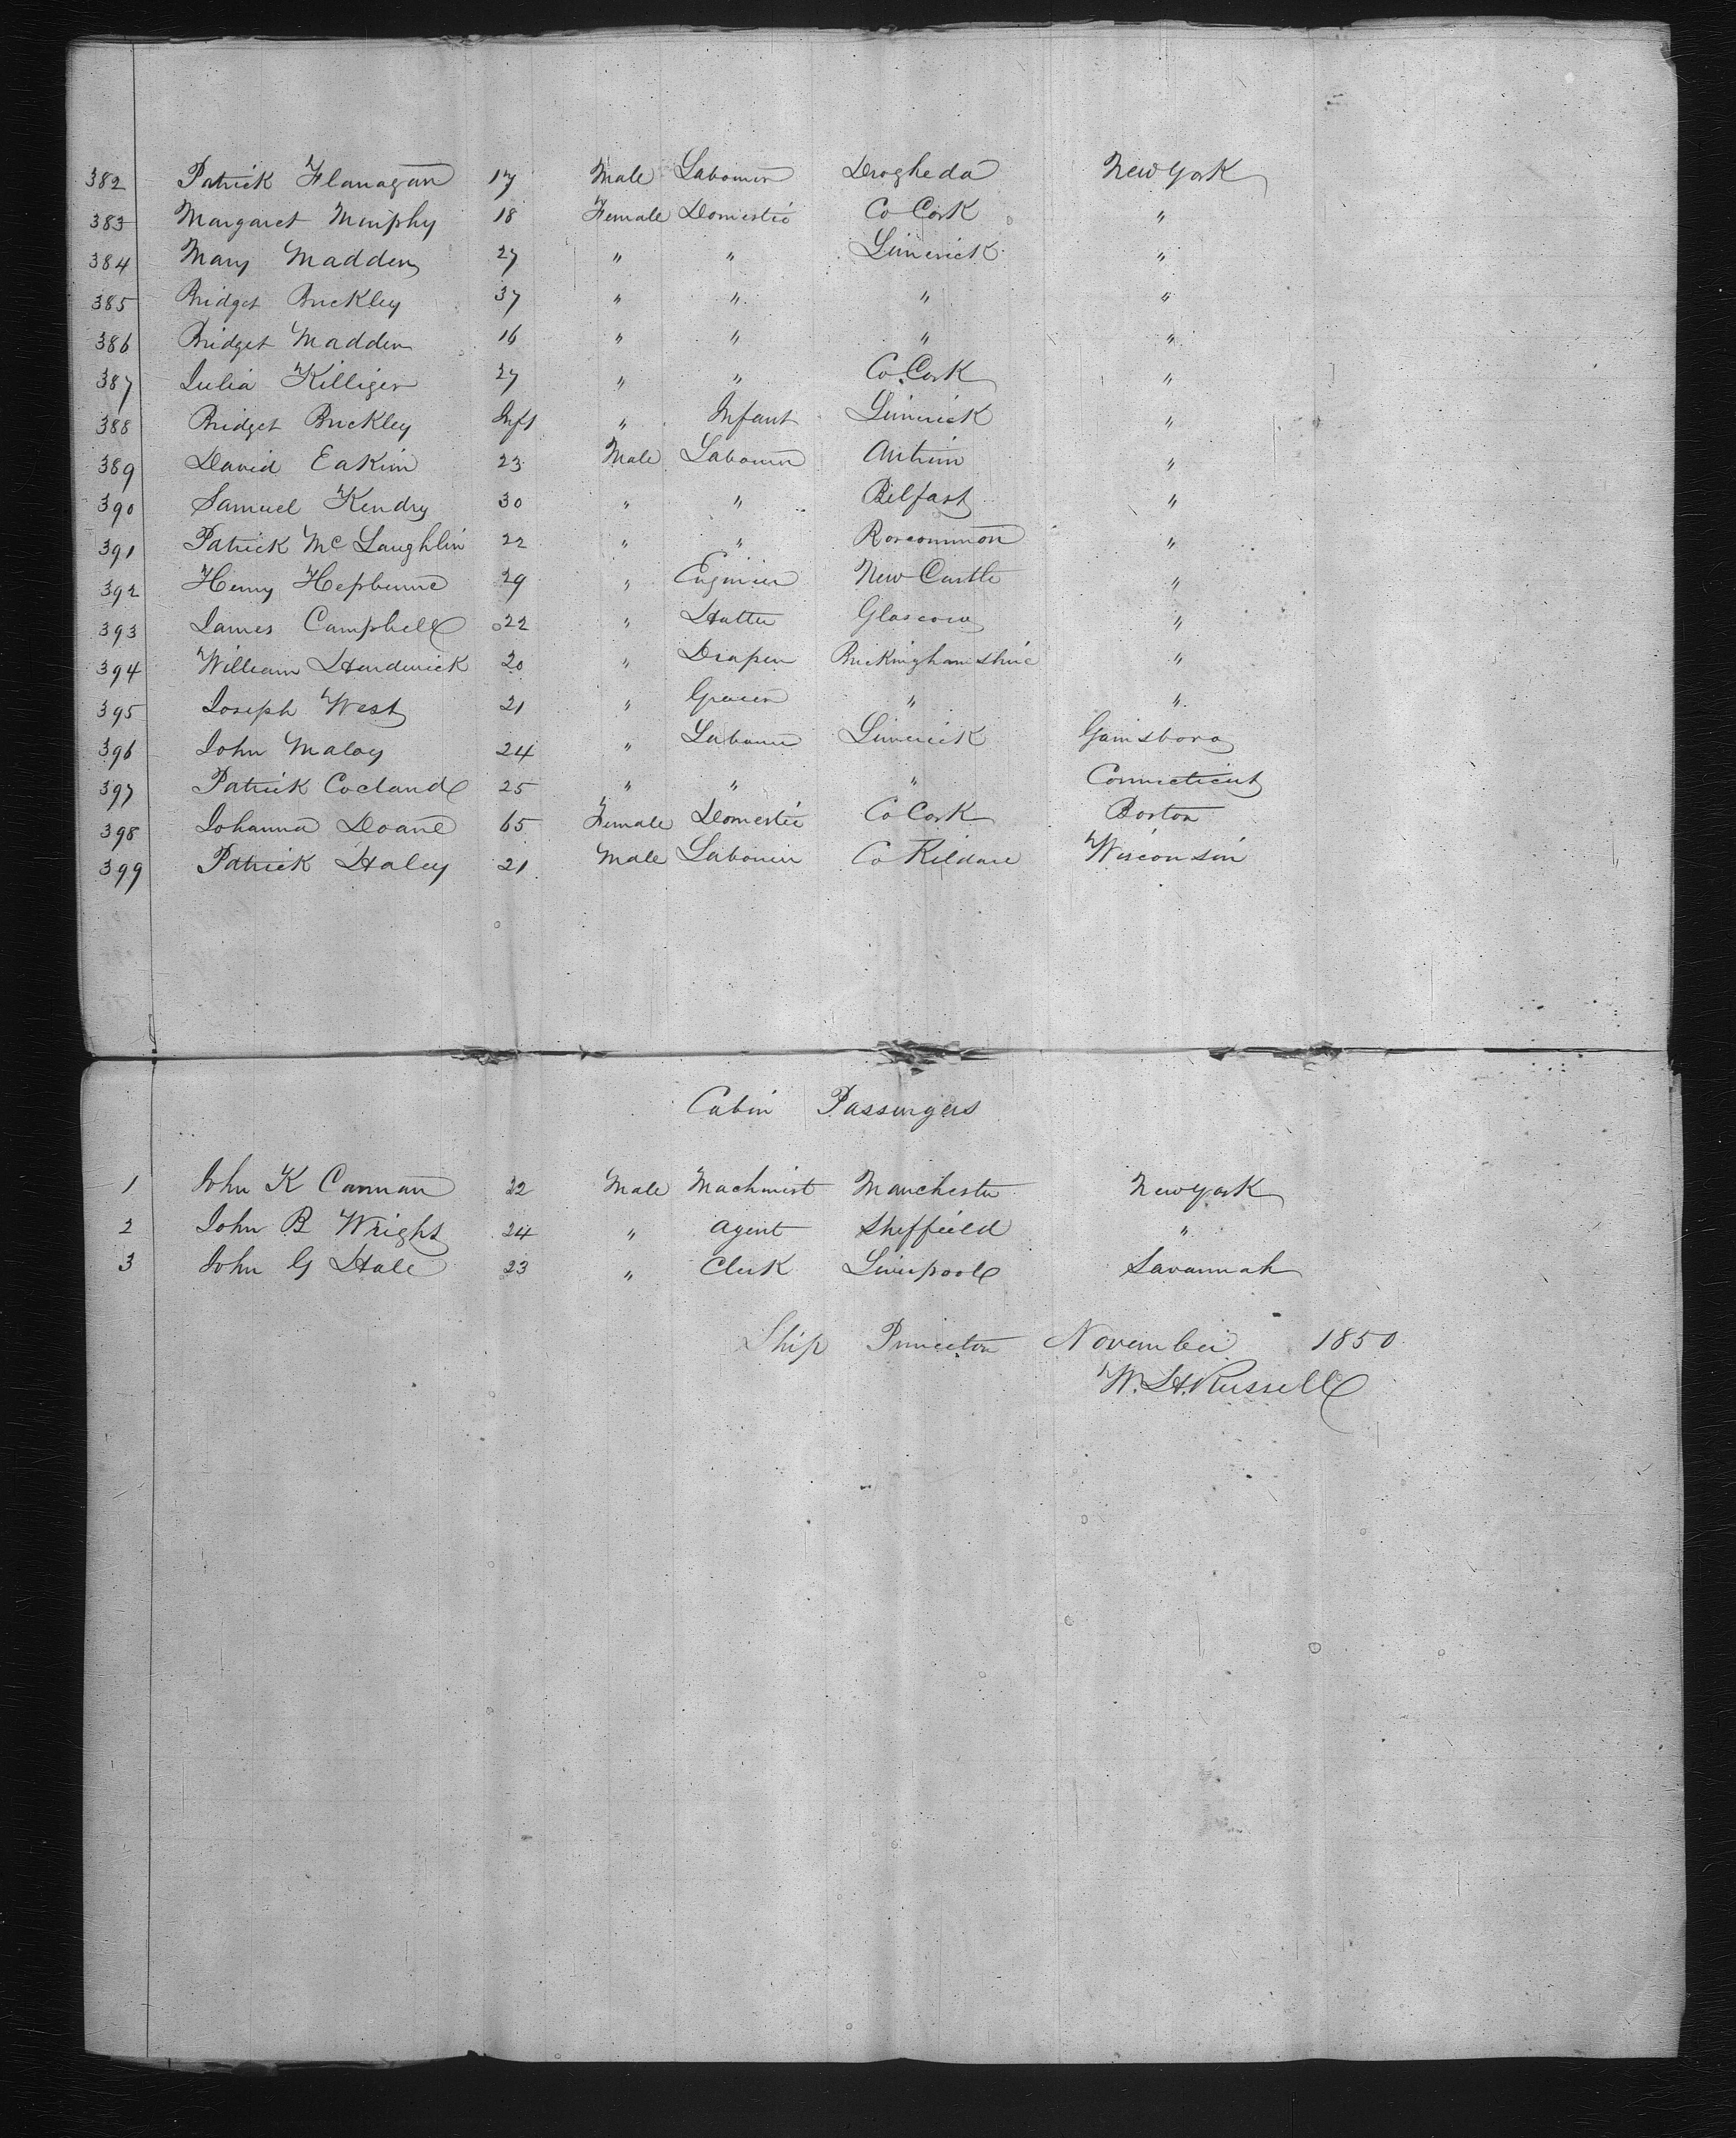 382 Patrick Flanagan 17 Male Labourer Drogheda New York
383 Margaret Murphy 18 Female Domestic Co Cork "
384 Mary Madden 27 " " Limerick "
385 Bridget Buckley 37 " " " "
386 Bridget Madden 16 " " " "
387 Julia Killiger 27 " " Co Cork "
388 Bridget Buckley Inft " Infant Limerick "
389 David Eakin 23 Male Labourer Antrim "
390 Samuel Kendry 30 " " Belfast "
391 Patrick McLaughlin 22 " " Roscommon "
392 Henry Hepburne 29 " Engineer New Castle "
393 James Campbell 22 " Hatter Glascow "
394 William Hardwick 20 " Draper Buckinghamshire "
395 Joseph West 21 " Grocer " "
396 John Maloy 24 " Labourer Limerick Gainsboro
397 Patrick 25 " " " Connecticut
398 Johanna Doane 65 Female Domestic Co Cork Boston
399 Patrick Haley 21 Male Labourer Co Kildare Wisconsin
Cabin Passengers
1 John K Canman 32 Male Machinist Manchester New York
2 John B Wright 24 " Agent Sheffield "
3 John G Hale 23 " Clerk Liverpool Savannah
Ship Princeton November 1850
W. H. Russell